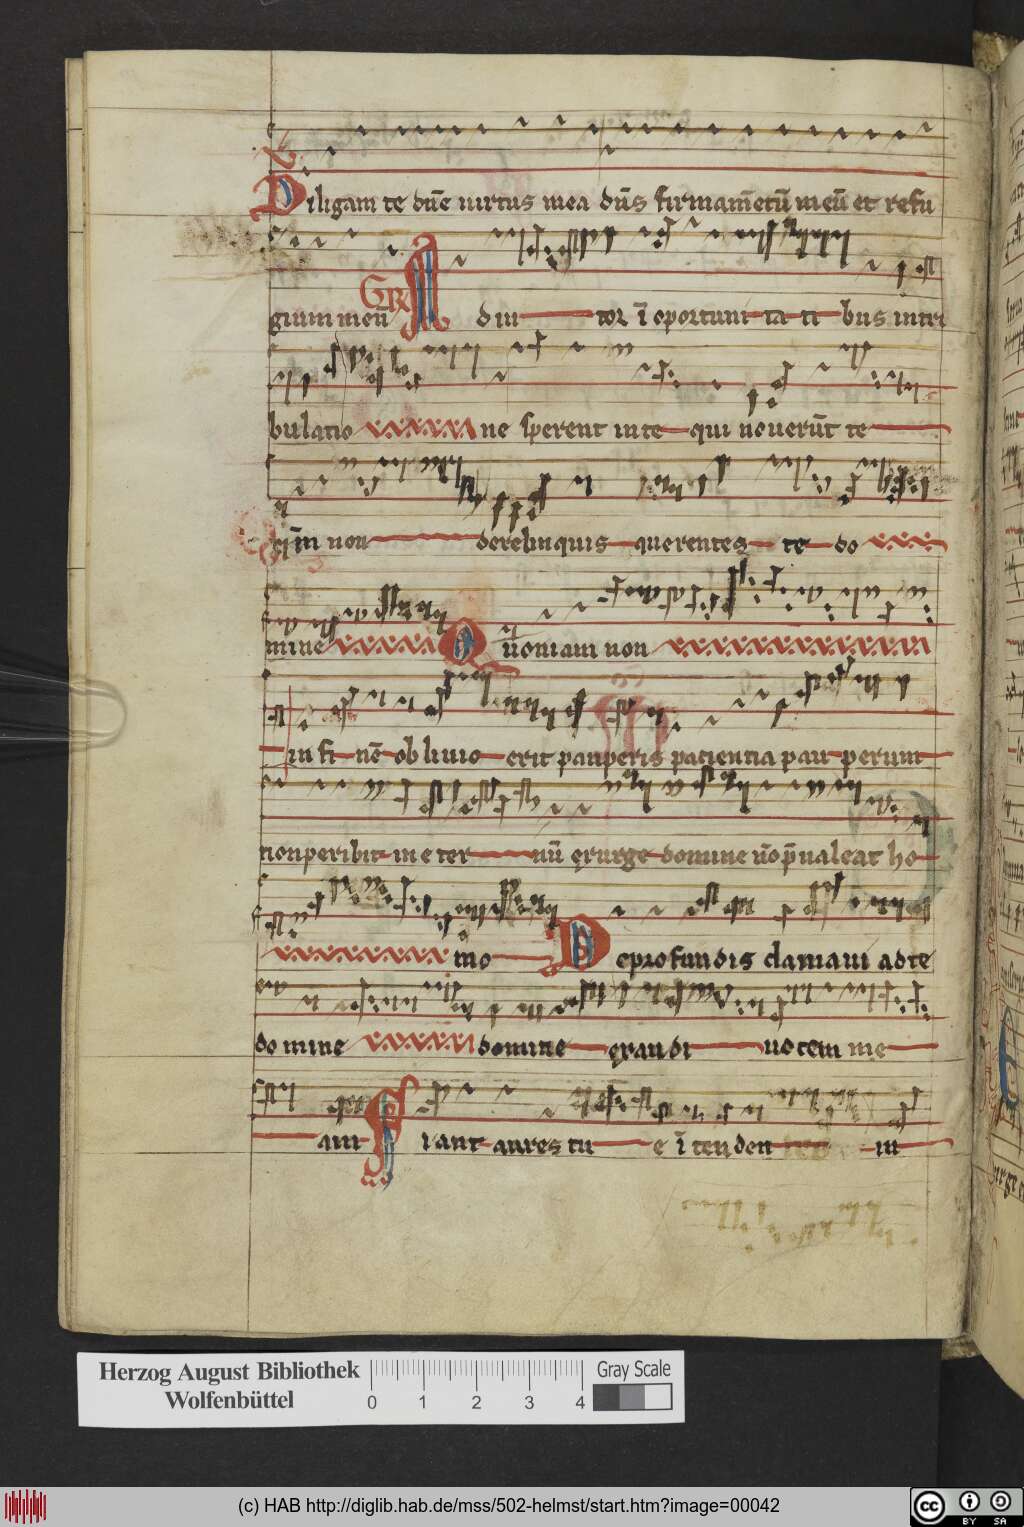 Diligam te dn̄e uirtus mea dn̄s firmam̄etū meū et refu
gium meū GR A diu tor ī oportuni ta ti bus in tri
bulatio ne sperent in te qui nouerūt te
qm̄ non derelinquis querentes te do
mine Q uoniam non
in fi nē ob liuio erit pauperis pacientia pau perum
non peribit in e ter nū exurge domine nō p̄ualeat ho
mo D e profundis clamaui ad te
do mine domine exaudi uocem me
am F iant aures tu e ī ten den in
Herzog August Bibliothek
Wolfenbüttel
0 1 2 3 4
Gray Scale
(c) HAB http://diglib.hab.de/mss/502-helmst/start.htm?image=00042
cc BY SA